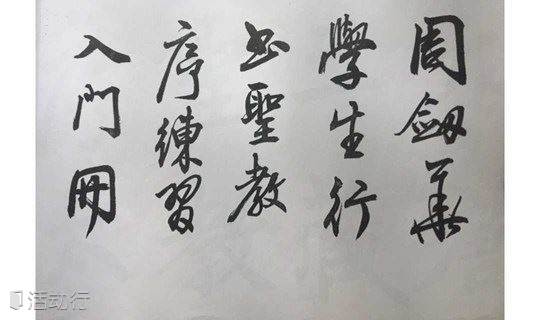 周劔華
學生行
書聖教
序練習
入門冊
活动行